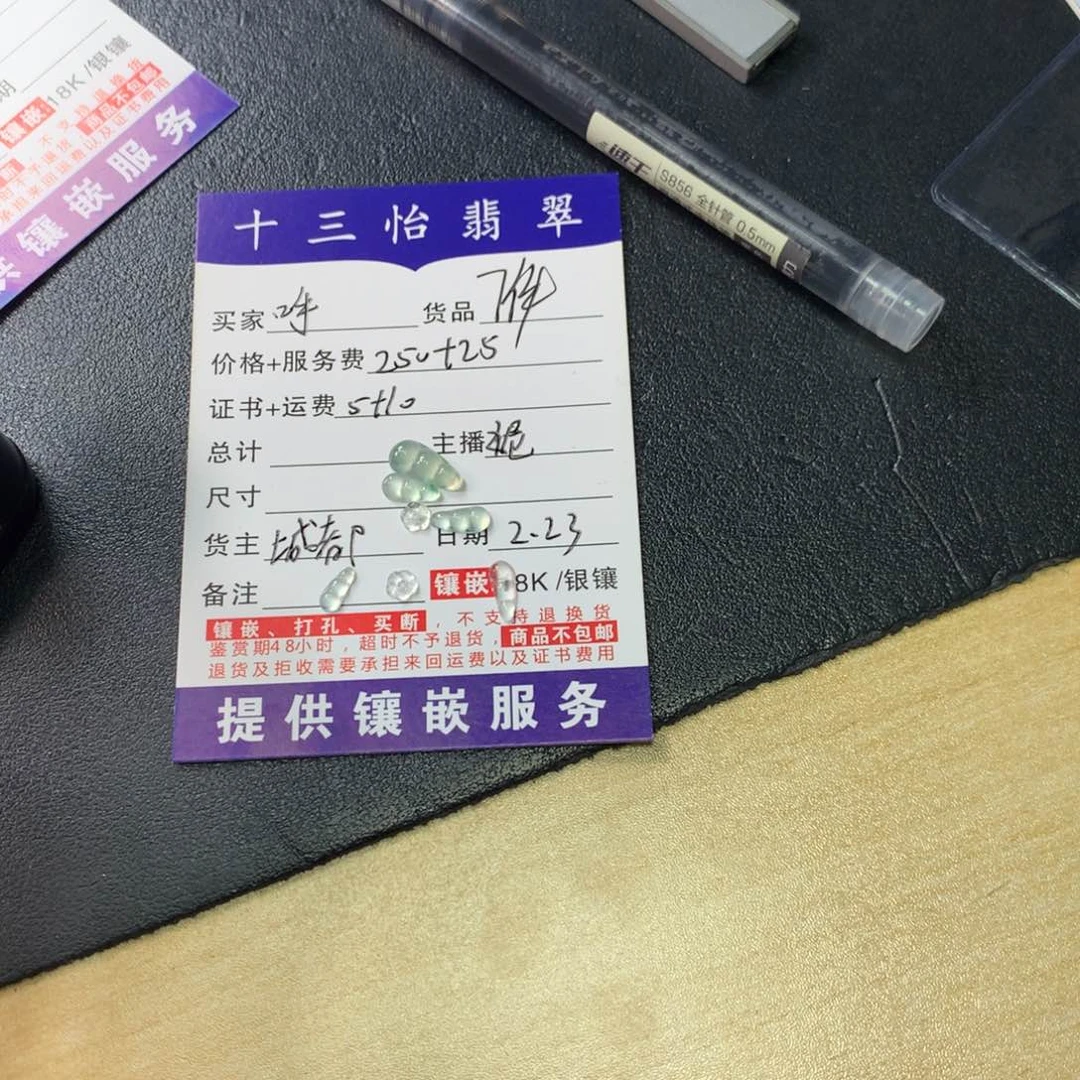 期
镶嵌:18K /银镶
不支持退换货
商品不包邮
镶嵌服务
速干 S856 全针管 0.5mm
十三怡翡翠
买家 货品 7件
价格+服务费 250+25
证书+运费 5+10
总计 主播
尺寸
货主 成都 日期 2.23
备注 镶嵌 8K /银镶
镶嵌、打孔、买断，不支持退换货
鉴赏期48小时，超时不予退货，商品不包邮
退货及拒收需要承担来回运费以及证书费用
提供镶嵌服务